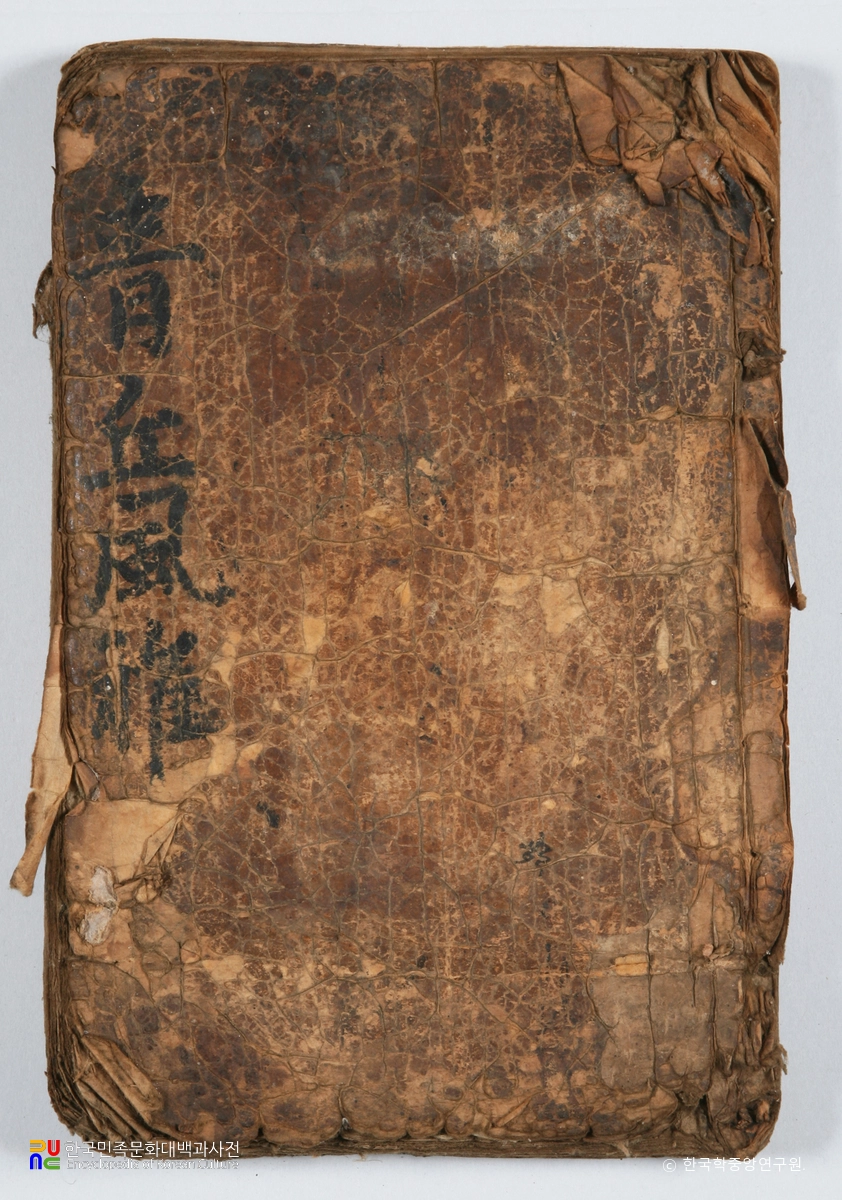 青丘風雅
한국민족문화대백과사전
Encyclopedia of Korean culture
© 한국학중앙연구원.